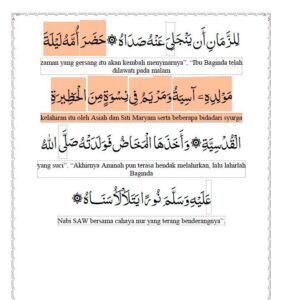 لِلزَّمَانِ أَنْ يَنْجَلِيَ عَنْهُ صَدَاهُ ۞ حَضَرَ أُمَّهُ لَيْلَةَ
zaman yang gersang itu akan kembali menyinarnya”. “Ibu Baginda telah
dilawati pada malam
مَوْلِدِهِ آسِيَةُ وَمَرْيَمُ فِي نِسْوَةٍ مِنَ الْحَظِيرَةِ
kelahiran itu oleh Asiah dan Siti Maryam serta beberapa bidadari syurga
الْقُدْسِيَّةِ ۞ وَأَخَذَهَا الْمَخَاضُ فَوَلَدَتْهُ صَلَّى اللهُ
yang suci”. “Akhirnya Aminah pun terasa hendak melahirkan, lalu lahirlah
Baginda
عَلَيْهِ وَسَلَّمَ نُوْرًا يَتَلَأْلَأُ سَنَاهُ ۞
Nabi SAW bersama cahaya nur yang terang benderangnya”.